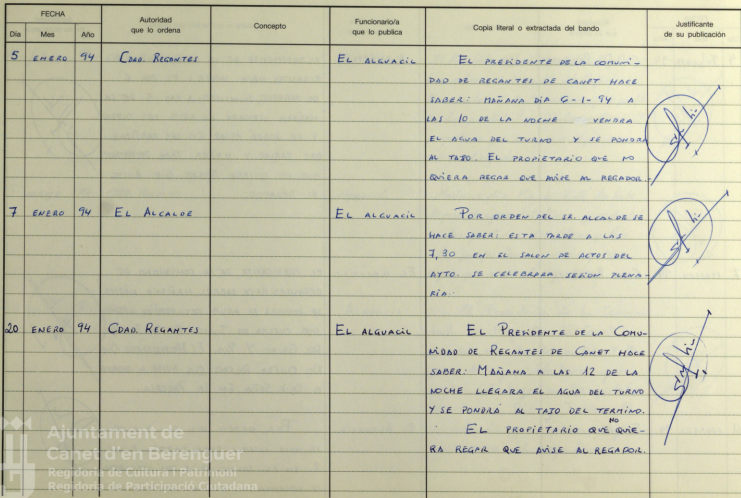 FECHA
Día Mes Año
Autoridad
que lo ordena
Concepto
Funcionario/a
que lo publica
Copia literal o extractada del bando
Justificante
de su publicación
5 ENERO 94 CDAD. REGANTES EL ALGUACIL EL PRESIDENTE DE LA COMUNI-
DAD DE REGANTES DE CANET HACE
SABER: MAÑANA DIA 6-1-94 A
LAS 10 DE LA NOCHE VENDRA
EL AGUA DEL TURNO Y SE PONDRA
AL TAJO. EL PROPIETARIO QUE NO
QUIERA REGAR QUE AVISE AL REGADOR.
7 ENERO 94 EL ALCALDE EL ALGUACIL POR ORDEN DEL SR. ALCALDE SE
HACE SABER: ESTA TARDE A LAS
7,30 EN EL SALON DE ACTOS DEL
AYTO. SE CELEBRARA SESION PLENA-
RIA.
20 ENERO 94 CDAD. REGANTES EL ALGUACIL EL PRESIDENTE DE LA COMU-
NIDAD DE REGANTES DE CANET HACE
SABER: MAÑANA A LAS 12 DE LA
NOCHE LLEGARA EL AGUA DEL TURNO
Y SE PONDRÁ AL TAJO DEL TERMINO.
EL PROPIETARIO QUE NO QUIE-
RA REGAR QUE AVISE AL REGADOR.
Ajuntament de
Canet d'en Berenguer
Regidoria de Cultura i Patrimoni
Regidoria de Participació Ciutadana